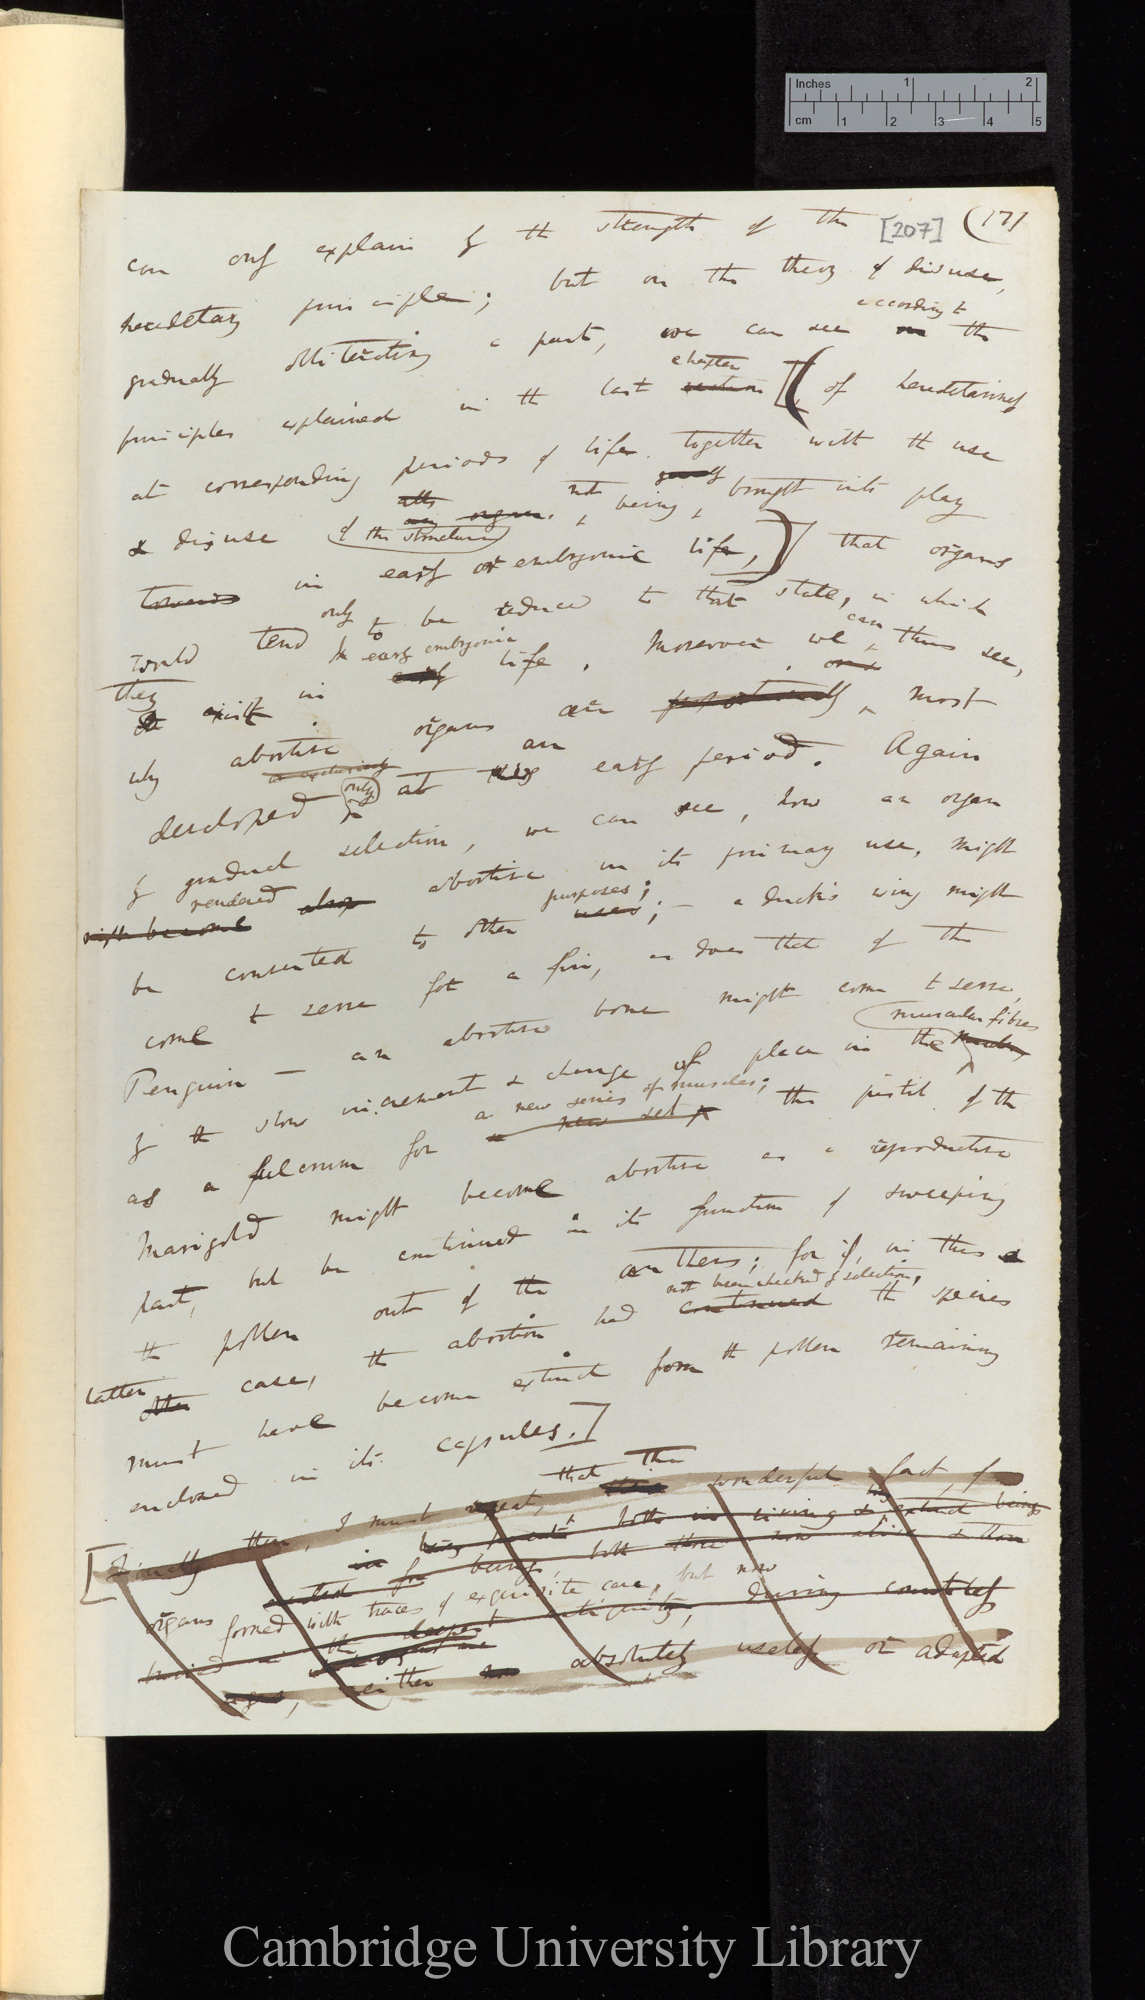 Inches 1 2
cm 1 2 3 4 5
[207] (171
can only explain by the strength of the
hereditary principle; but on the theory of disuse,
according to
gradually obliterating a part, we can see on the
chapter
principles explained in the last section [(of hereditariness
at corresponding periods of life together with the use
& disuse of the structure not being brought into play
towards in early or embryonic life,)] that organs
only
would tend to be reduced to that state, in which
they exist in early embryonic life. Moreover we can thus see,
why abortive organs are most
developed only at an early period. Again
by gradual selection, we can see, how an organ
might become rendered abortive in its primary use, might
purposes;
be converted to other uses; — a duck's wing might
come to serve for a fin, as does that of the
Penguin — an abortive bone might come to serve,
muscular fibres
by the slow increment & change of place in the
a new series of muscles;
as a fulcrum for a new set the pistil of the
Marigold might become abortive as a reproductive
part, but be continued in its function of sweeping
the pollen out of the anthers; for if, in this
not been checked by selection,
latter other case, the abortion had continued the species
must have become extinct from the pollen remaining
enclosed in its capsules.]
that the
[Finally then, I must repeat, wonderful fact, of
organs formed with traces of exquisite care, but now
neither absolutely useless or adapted
Cambridge University Library